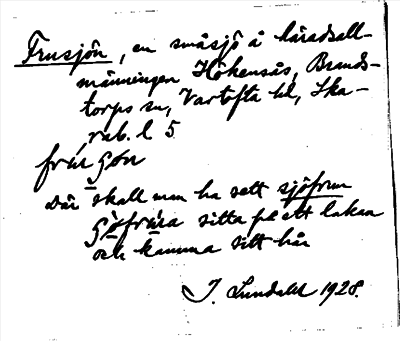 Frusjön, en småsjö å häradsall-
männingen Hökensås, Brands-
torps sn, Vartofta hd, Ska-
rab. l 5
frúr sön
där skall man ha sett sjöfrun
sitta på ett lakan
och kamma sitt hår
J. Lundahl 1928.